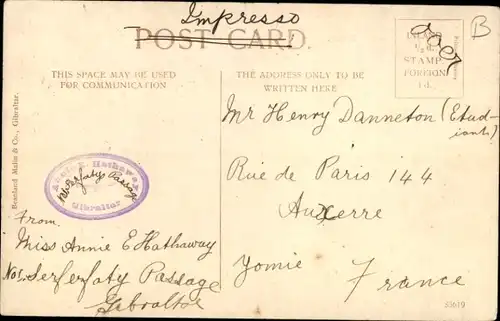 Impresso
POST CARD.
INLAND
½d.
STAMP
FOREIGN
1d.
B
THIS SPACE MAY BE USED
FOR COMMUNICATION
THE ADDRESS ONLY TO BE
WRITTEN HERE
Mr Henry Danneton (Etud-
iants)
Rue de Paris 144
Auxerre
Yonnie
France
Beanland Malin & Co., Gibraltar.
Annie E. Hathaway
Serfaty Passage
Gibraltar
From
Miss Annie E Hathaway
No 1 Serferfaty Passage
Gibraltar